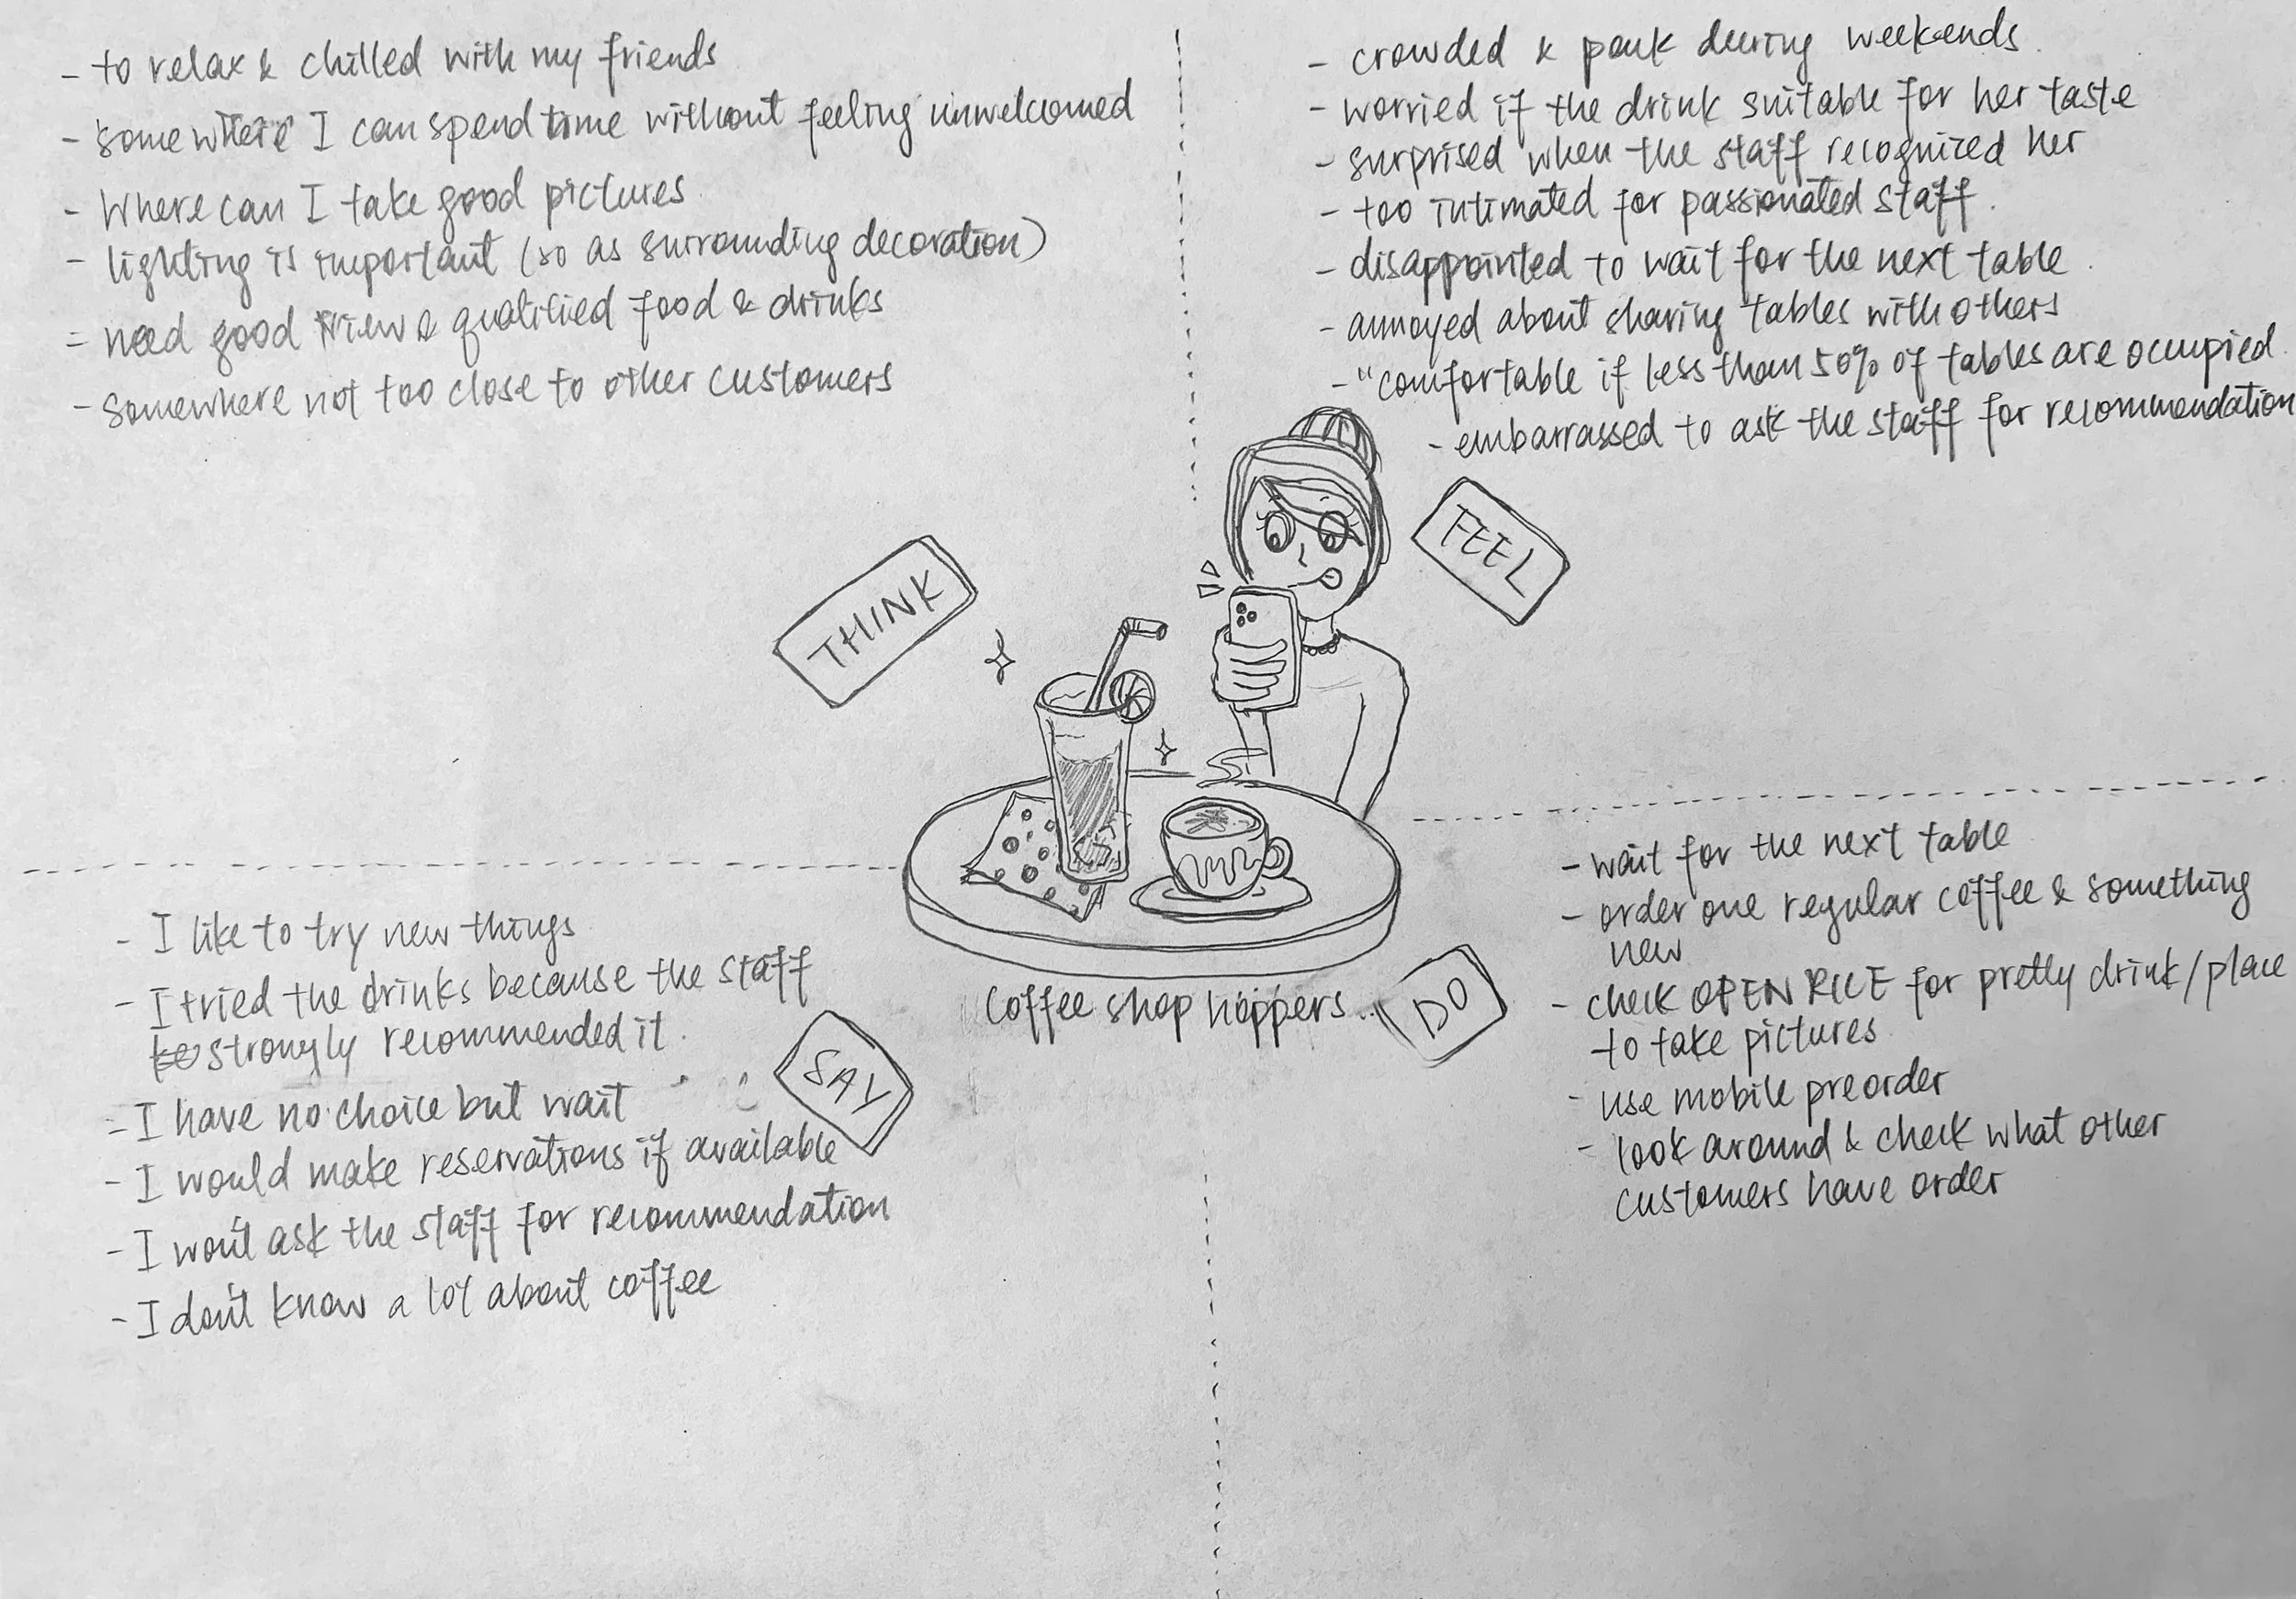 - to relax & chilled with my friends
- somewhere I can spend time without feeling unwelcomed
- Where can I take good pictures
- lighting is important (so as surrounding decoration)
- need good view & qualified food & drinks
- somewhere not too close to other customers
THINK
- crowded & pack during weekends.
- worried if the drink suitable for her taste
- surprised when the staff recognized her
- too intimated for passionated staff.
- disappointed to wait for the next table.
- annoyed about sharing tables with others
- "comfortable if less than 50% of tables are occupied.
- embarrassed to ask the staff for recommendation
FEEL
- I like to try new things
- I tried the drinks because the staff
strongly recommended it.
- I have no choice but wait
- I would make reservations if available
- I won't ask the staff for recommendation
- I don't know a lot about coffee
SAY
Coffee shop hoppers...
DO
- wait for the next table
- order one regular coffee & something
new
- check OPEN RICE for pretty drink/place
to take pictures
- use mobile preorder
- look around & check what other
customers have order